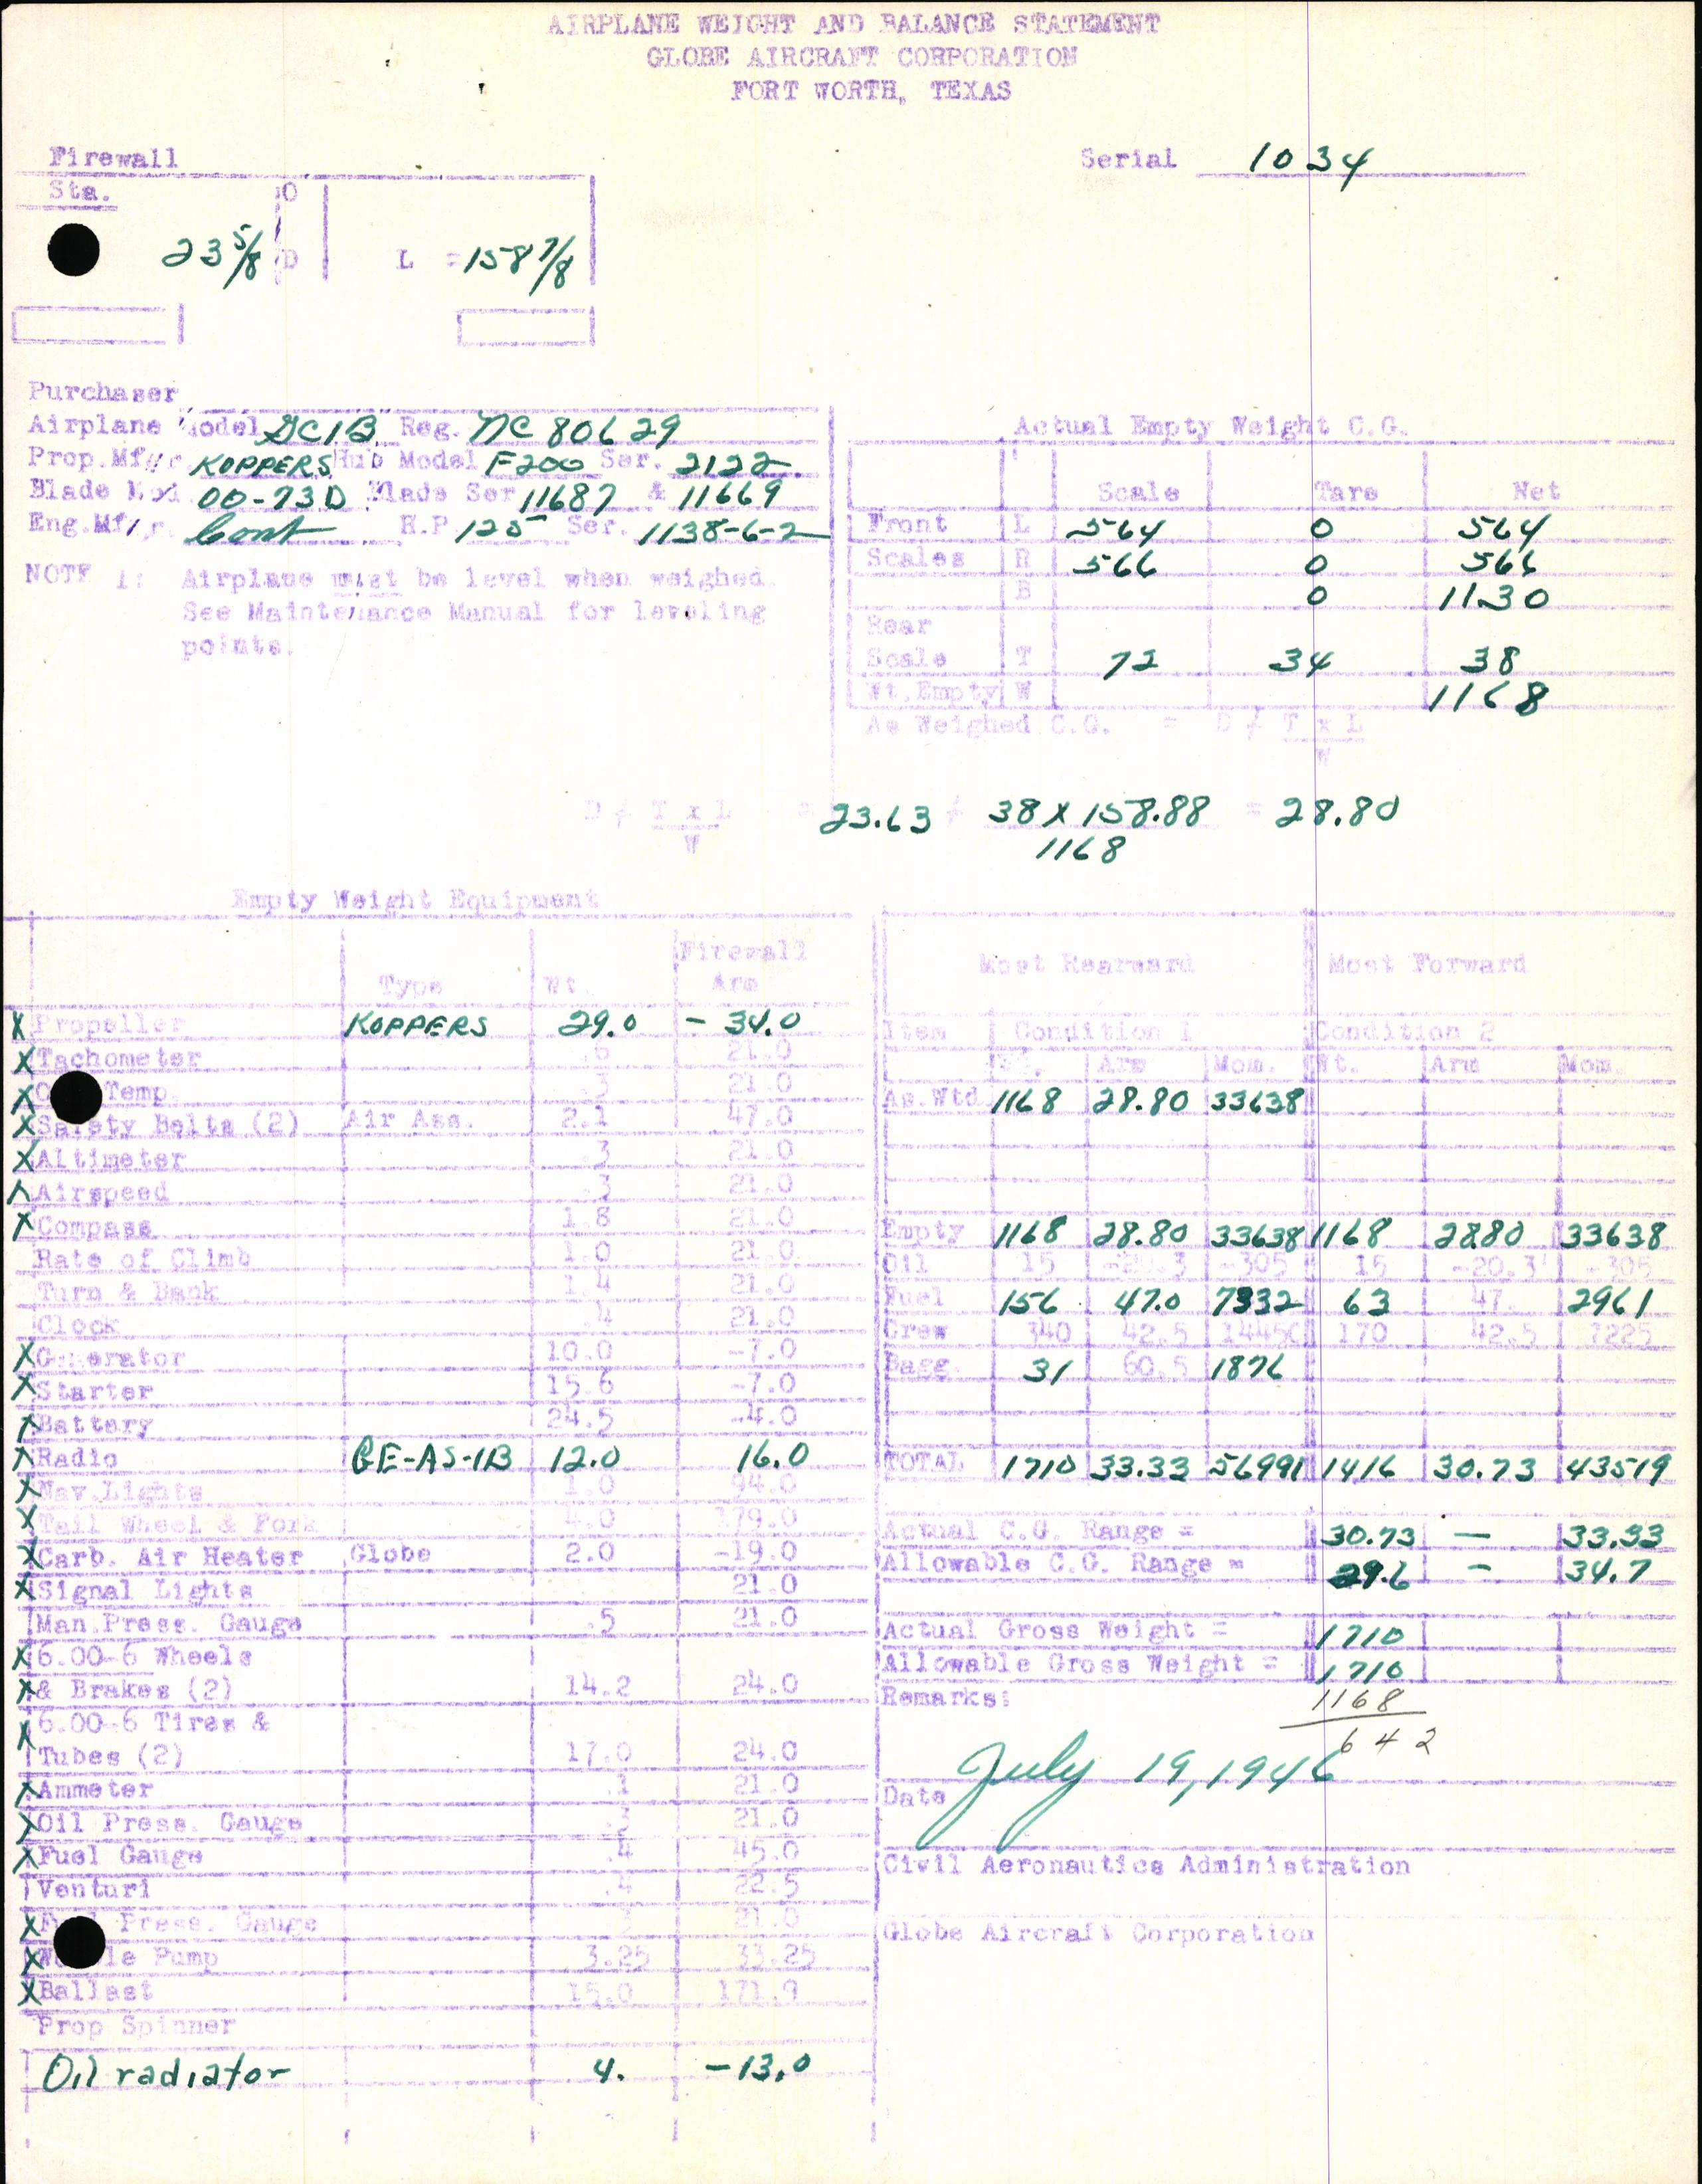 AIRPLANE WEIGHT AND BALANCE STATEMENT
GLOBE AIRCRAFT CORPORATION
FORT WORTH, TEXAS
Firewall
Serial 1034
Sta. O
23 5/8 D L = 158 7/8
Purchaser
Airplane Model GC1B Reg. NC 80629
Prop.Mfgr. KOPPERS Hub Model F200 Ser. 2122
Blade Mod. 00-73D Blade Ser 11687 & 11669
Eng.Mfgr. Cont H.P. 125 Ser. 1138-6-2
NOTE 1: Airplane must be level when weighed.
See Maintenance Manual for leveling
points.
Actual Empty Weight C.G.
Scale Tare Net
Front L 564 0 564
Scales R 566 0 566
B 0 1130
Rear
Scale T 72 34 38
Wt.Empty W 1168
As Weighed C.G. = D ≠ T x L
W
D ≠ T x L = 23.63 ≠ 38 X 158.88 = 28.80
W 1168
Empty Weight Equipment
Type Wt. Firewall Arm
X Propeller KOPPERS 29.0 -34.0
X Tachometer .6 21.0
X Temp. .3 21.0
X Safety Belts (2) Air Ass. 2.1 47.0
X Altimeter .3 21.0
X Airspeed .3 21.0
X Compass 1.8 21.0
Rate of Climb 1.0 21.0
Turn & Bank 1.4 21.0
Clock .4 21.0
X Generator 10.0 -7.0
X Starter 15.6 -7.0
X Battery 24.5 -4.0
X Radio GE-AS-1B 12.0 16.0
X Nav.Lights 1.0 94.0
X Tail Wheel & Fork 4.0 179.0
X Carb. Air Heater Globe 2.0 -19.0
X Signal Lights 21.0
Man.Press. Gauge .5 21.0
X 6.00-6 Wheels
X & Brakes (2) 14.2 24.0
X 6.00-6 Tires &
Tubes (2) 17.0 24.0
X Ammeter .1 21.0
X Oil Press. Gauge 21.0
X Fuel Gauge .4 45.0
Venturi .4 22.5
X Press. Gauge 21.0
X Pump 3.25 33.25
X Ballast 15.0 171.9
Prop Spinner
Oil radiator 4. -13.0
Most Rearward Most Forward
Item Condition 1 Condition 2
Wt. Arm Mom. Wt. Arm Mom.
As.Wtd. 1168 28.80 33638
Empty 1168 28.80 33638 1168 2880 33638
Oil 15 -20.3 -305 15 -20.3 -305
Fuel 156 47.0 7332 63 47. 2961
Crew 340 42.5 14450 170 42.5 7225
Bagg. 31 60.5 1876
TOTAL 1710 33.33 56991 1416 30.73 43519
Actual C.G. Range = 30.73 — 33.33
Allowable C.G. Range = 29.6 - 34.7
Actual Gross Weight = 1710
Allowable Gross Weight = 1710
Remarks: 1168
642
July 19, 1946
Date
Civil Aeronautics Administration
Globe Aircraft Corporation